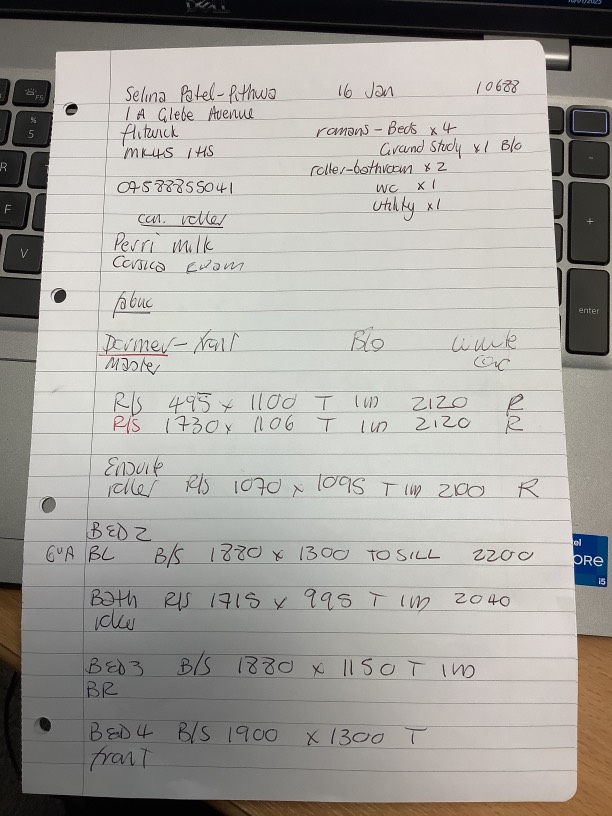 DELL
Selina Patel-Pithwa 16 Jan 10688
1A Glebe Avenue
flitwick romans - Beds x 4
MK45 1HS Grand Study x 1 B/o
roller-bathroom x 2
07588855041 WC x 1
utility x 1
roller
Perri milk
Corsica cream
fabric
Dormer - front B/o white
Master
R/S 495 x 1100 T 1M 2120 R
R/S 1730 x 1106 T 1M 2120 R
Ensuite
roller R/S 1070 x 1095 T 1M 2100 R
BED 2
BL B/S 1880 x 1300 TO SILL 2200
Bath R/S 1715 x 995 T 1M 2040
BED3 B/S 1880 x 1150 T 1M
BR
BED 4 B/S 1900 x 1300 T
front
enter
%
5
R
F
V
+
i5